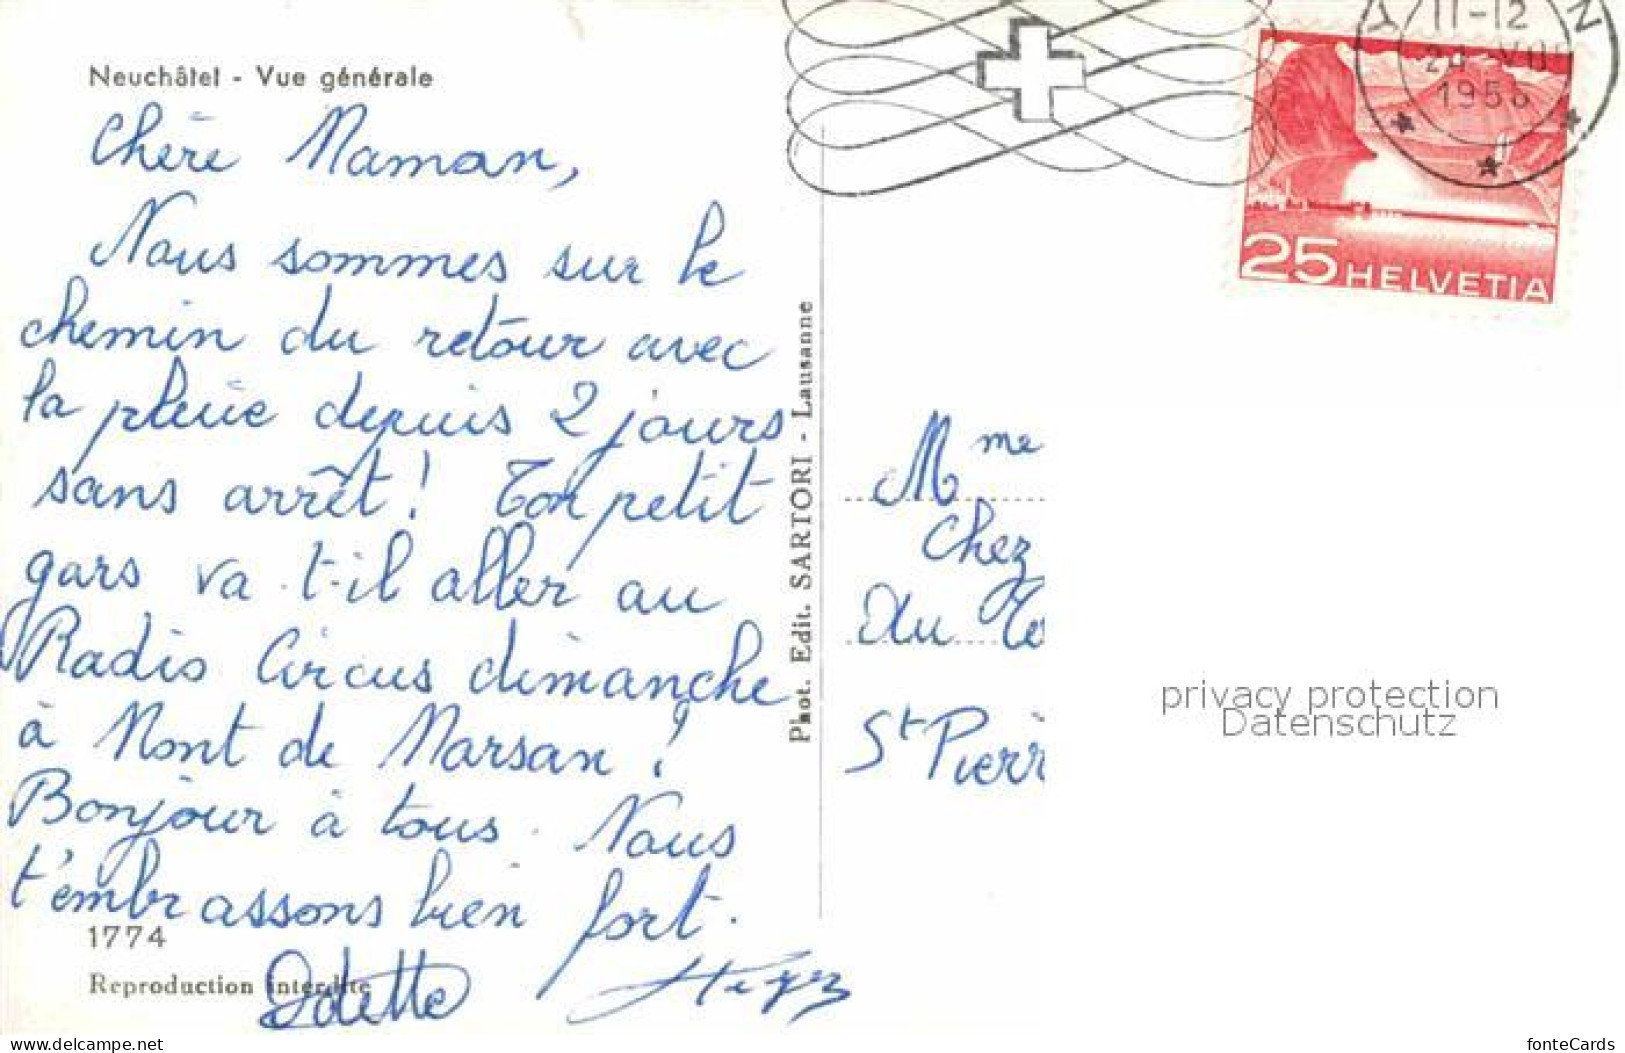 Neuchâtel - Vue générale
Chère Maman,
Nous sommes sur le
chemin du retour avec
la pluie depuis 2 jours
sans arrêt! Ton petit
gars va t-il aller au
Radio Circus dimanche
à Mont de Marsan ?
Bonjour à tous. Nous
t'embrassons bien fort.
1774
Reproduction interdite
Odette
Phot. Edit. SARTORI - Lausanne
11-12
24 VII
1956
25 HELVETIA
Mme
Chez
du
St Pierr
privacy protection
Datenschutz
www.delcampe.net
fonteCards